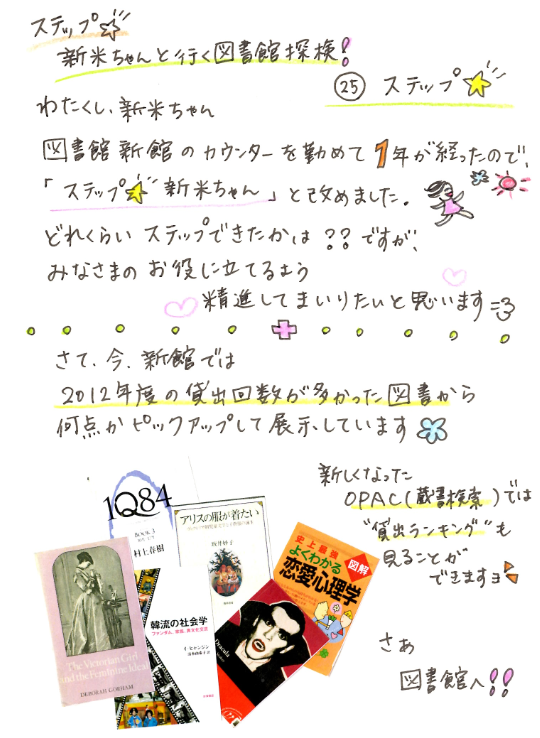 ステップ☆
新米ちゃんと行く図書館探検!
㉕ ステップ☆
わたくし、新米ちゃん
図書館新館のカウンターを勤めて1年が経ったので、
「ステップ☆新米ちゃん」と改めました。
どれくらいステップできたかは??ですが、
みなさまのお役に立てるよう
精進してまいりたいと思います=3
さて、今、新館では
2012年度の貸出回数が多かった図書から
何点かピックアップして展示しています
新しくなった
OPAC(蔵書検索)では
"貸出ランキング"も
見ることが
できますヨ
1Q84
BOOK 3
村上春樹
アリスの服が着たい
坂井妙子
史上最強
図解
よくわかる
恋愛心理学
The Victorian Girl
and the Feminine Ideal
DEBORAH GORHAM
韓流の社会学
ファンダム、家族、異文化交流
Dracula
さあ
図書館へ!!